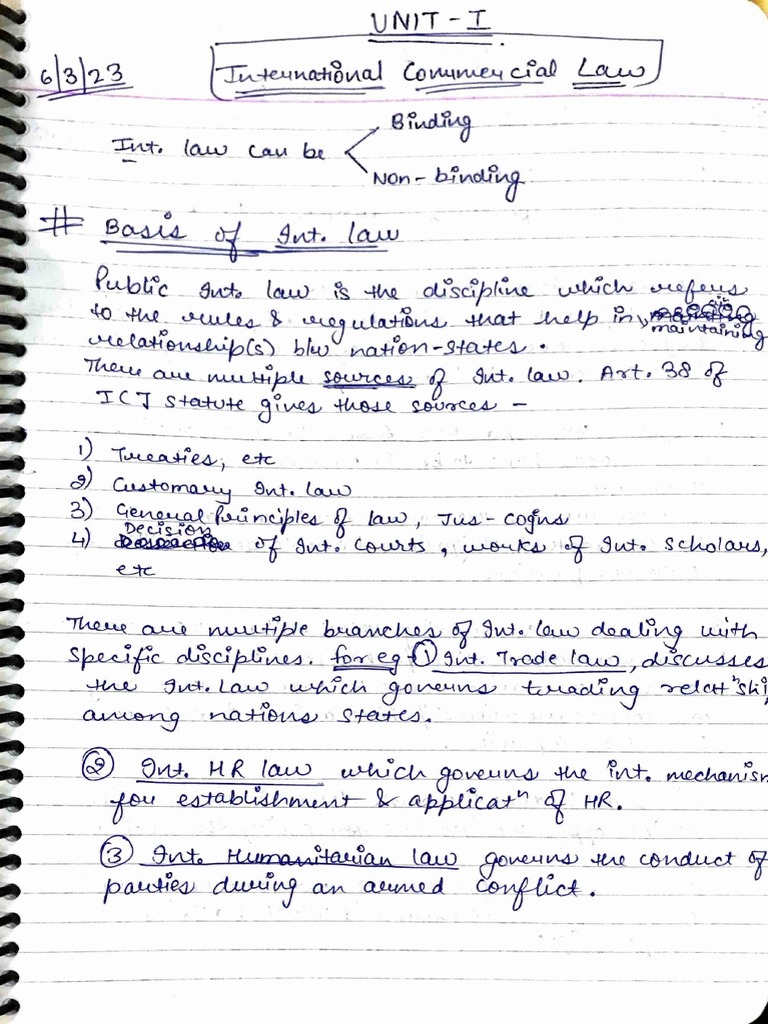 UNIT - I
6/3/23 International Commercial Law
Int. law can be
Binding
Non-binding
# Basis of Int. law
Public Int. law is the discipline which refers
to the rules & regulations that help in maintaining
relationship(s) b/w nation-states.
There are multiple sources of Int. law. Art. 38 of
ICJ statute gives those sources -
1) Treaties, etc
2) Customary Int. law
3) General Principles of law, Jus-cogns
4) Decision of Int. courts, works of Int. scholars,
etc
There are multiple branches of Int. law dealing with
specific disciplines. for eg ① Int. Trade law, discusses
the Int. Law which governs trading relatⁿshi
among nations states.
② Int. HR law which governs the int. mechanism
for establishment & applicatⁿ of HR.
③ Int. Humanitarian law governs the conduct of
parties during an armed conflict.